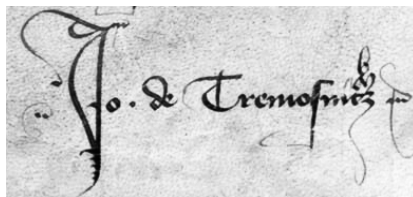 Jo. de Tremosnitz